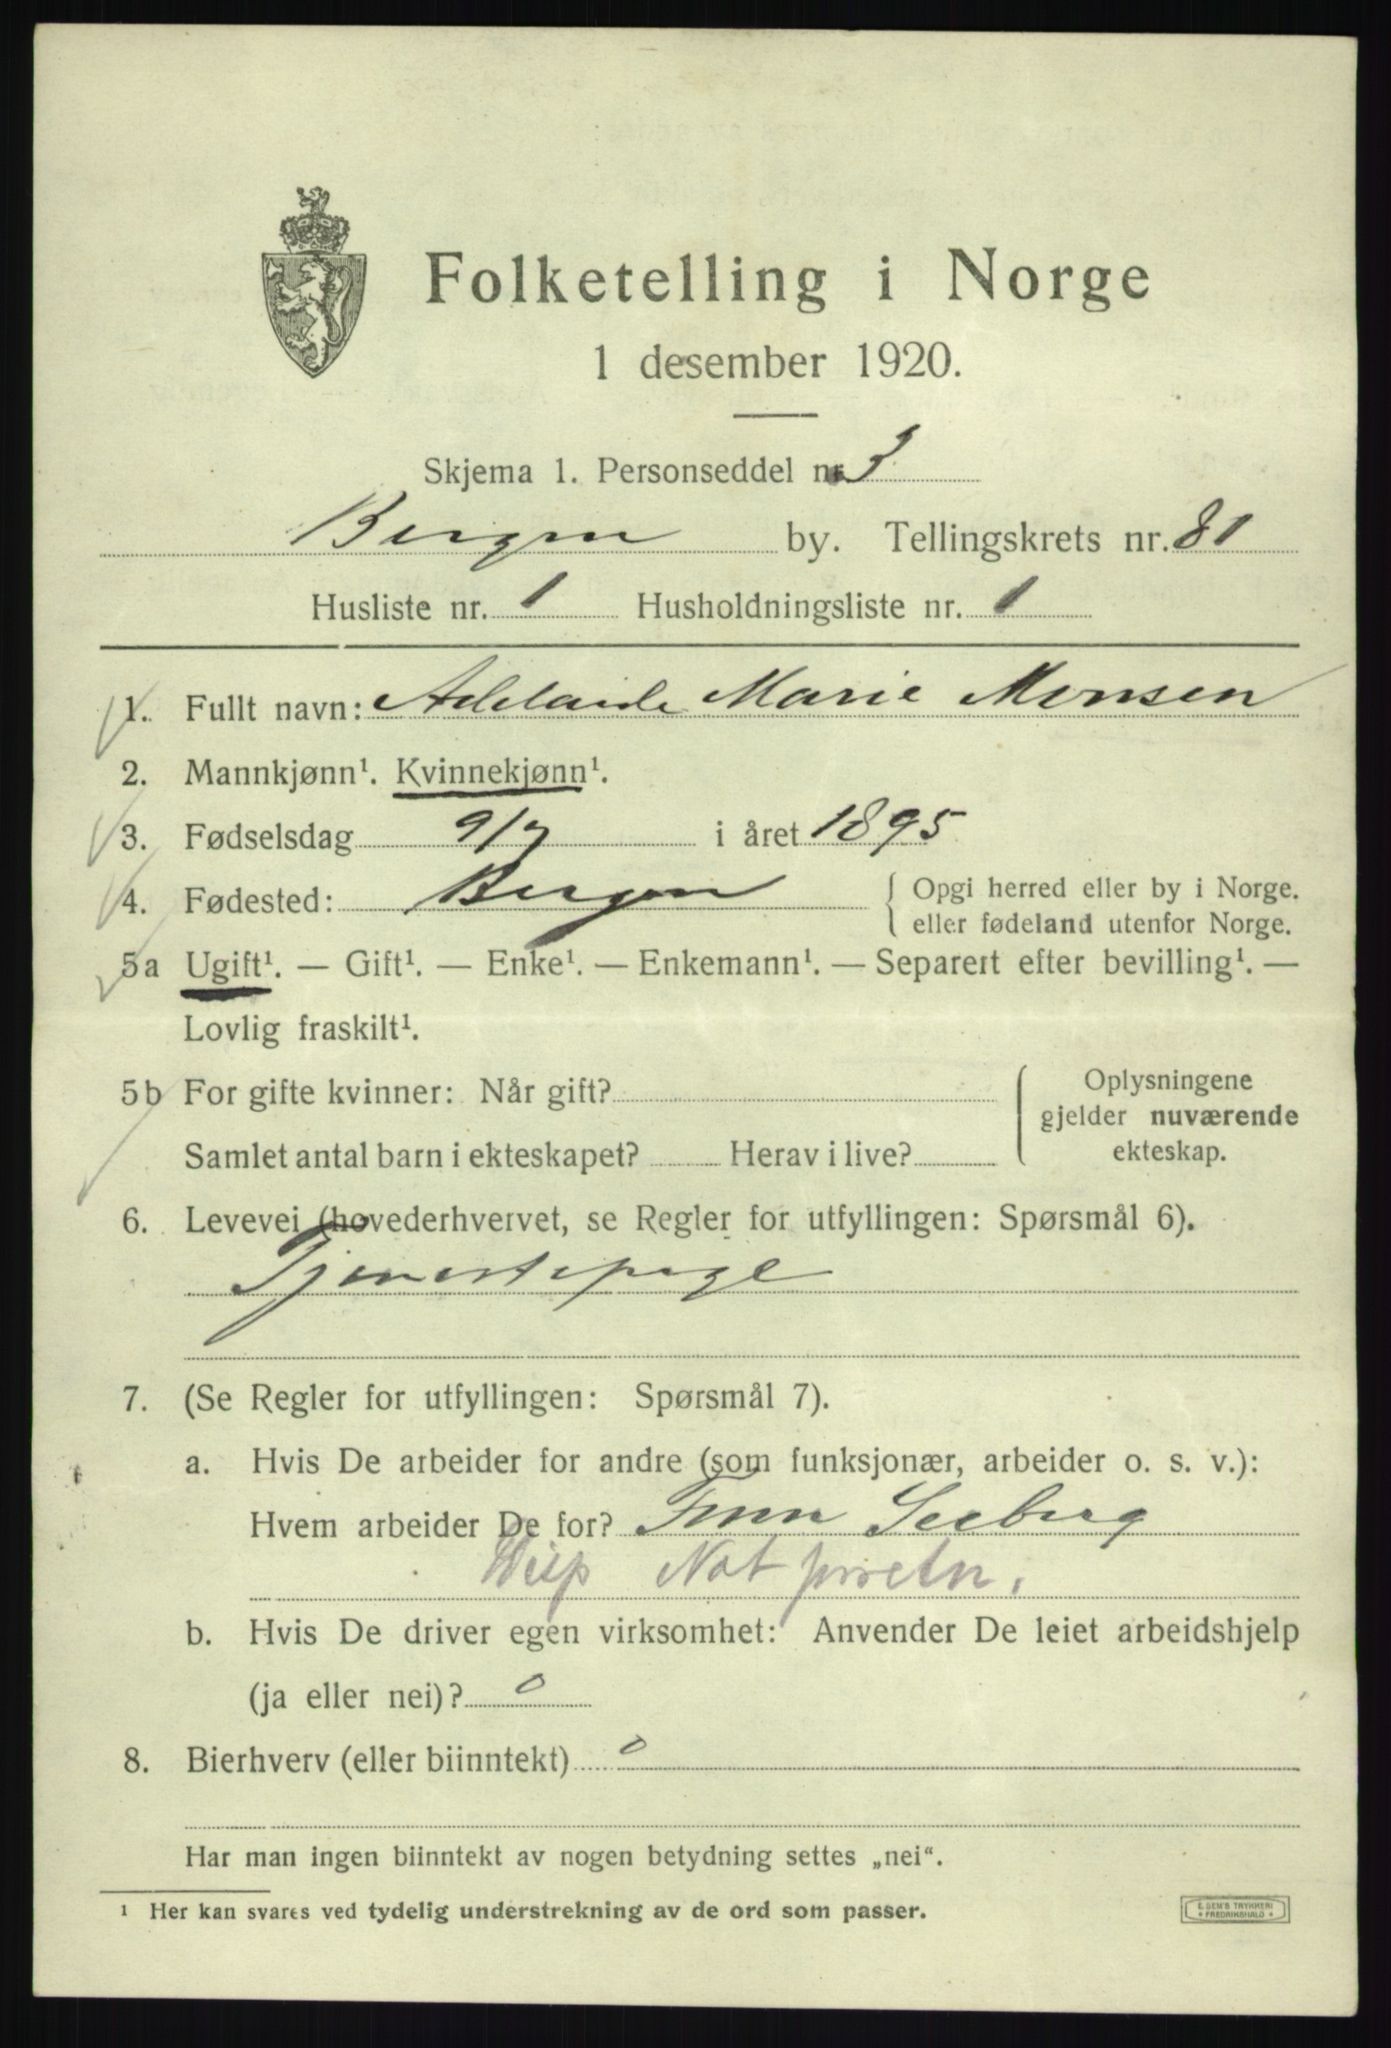 Folketelling i Norge
1 desember 1920.
Skjema 1. Personseddel nr. 3
Bergen by. Tellingskrets nr. 81
Husliste nr. 1 Husholdningsliste nr. 1
1. Fullt navn: Adelaide Marie Monsen
2. Mannkjønn¹. Kvinnekjønn¹.
3. Fødselsdag 9/7 i året 1895
4. Fødested: Bergen { Opgi herred eller by i Norge.
eller fødeland utenfor Norge.
5a Ugift¹. — Gift¹. — Enke¹. — Enkemann¹. — Separert efter bevilling¹. —
Lovlig fraskilt¹.
5b For gifte kvinner: Når gift? { Oplysningene
gjelder nuværende
Samlet antal barn i ekteskapet? Herav i live? ekteskap.
6. Levevei (hovederhvervet, se Regler for utfyllingen: Spørsmål 6).
Tjenestepige
7. (Se Regler for utfyllingen: Spørsmål 7).
a. Hvis De arbeider for andre (som funksjonær, arbeider o. s. v.):
Hvem arbeider De for? Finn Seeberg
Disp
b. Hvis De driver egen virksomhet: Anvender De leiet arbeidshjelp
(ja eller nei)? 0
8. Bierhverv (eller biinntekt) 0
Har man ingen biinntekt av nogen betydning settes „nei“.
¹ Her kan svares ved tydelig understrekning av de ord som passer.
E. SEM'S TRYKKERI
* FREDRIKSHALD *